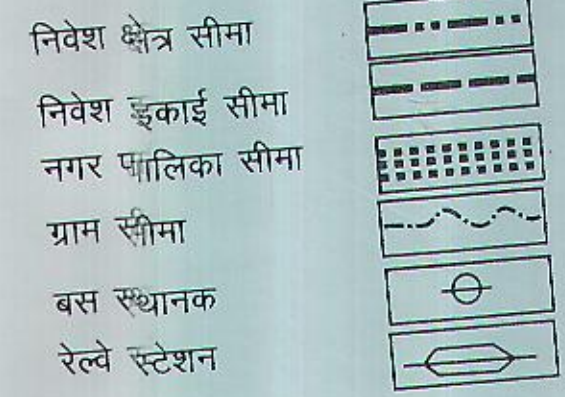 निवेश क्षेत्र सीमा
निवेश इकाई सीमा
नगर पालिका सीमा
ग्राम सीमा
बस स्थानक
रेल्वे स्टेशन